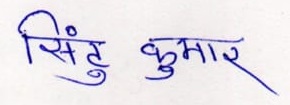 सिंटु कुमार